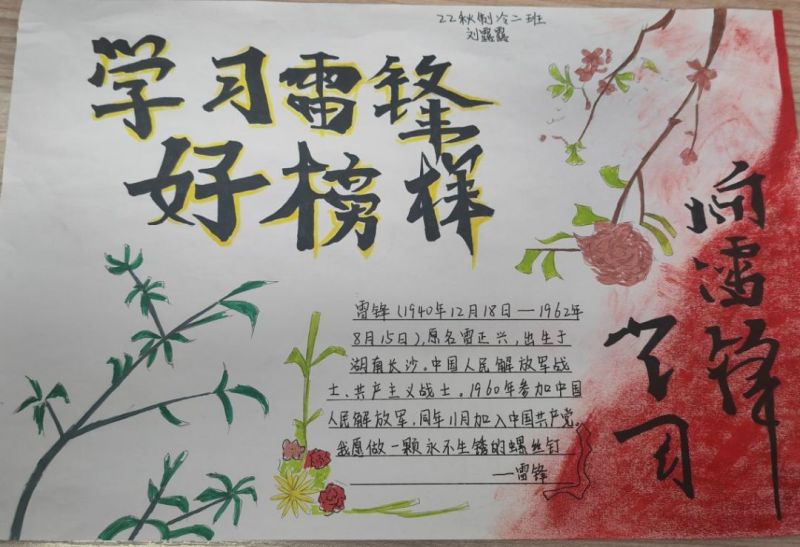 22秋制冷二班
刘露露
学习雷锋
好榜样
向雷锋
学习
雷锋(1940年12月18日—1962年
8月15日),原名雷正兴,出生于
湖南长沙。中国人民解放军战
士、共产主义战士。1960年参加中国
人民解放军,同年11月加入中国共产党。
我愿做一颗永不生锈的螺丝钉
—雷锋